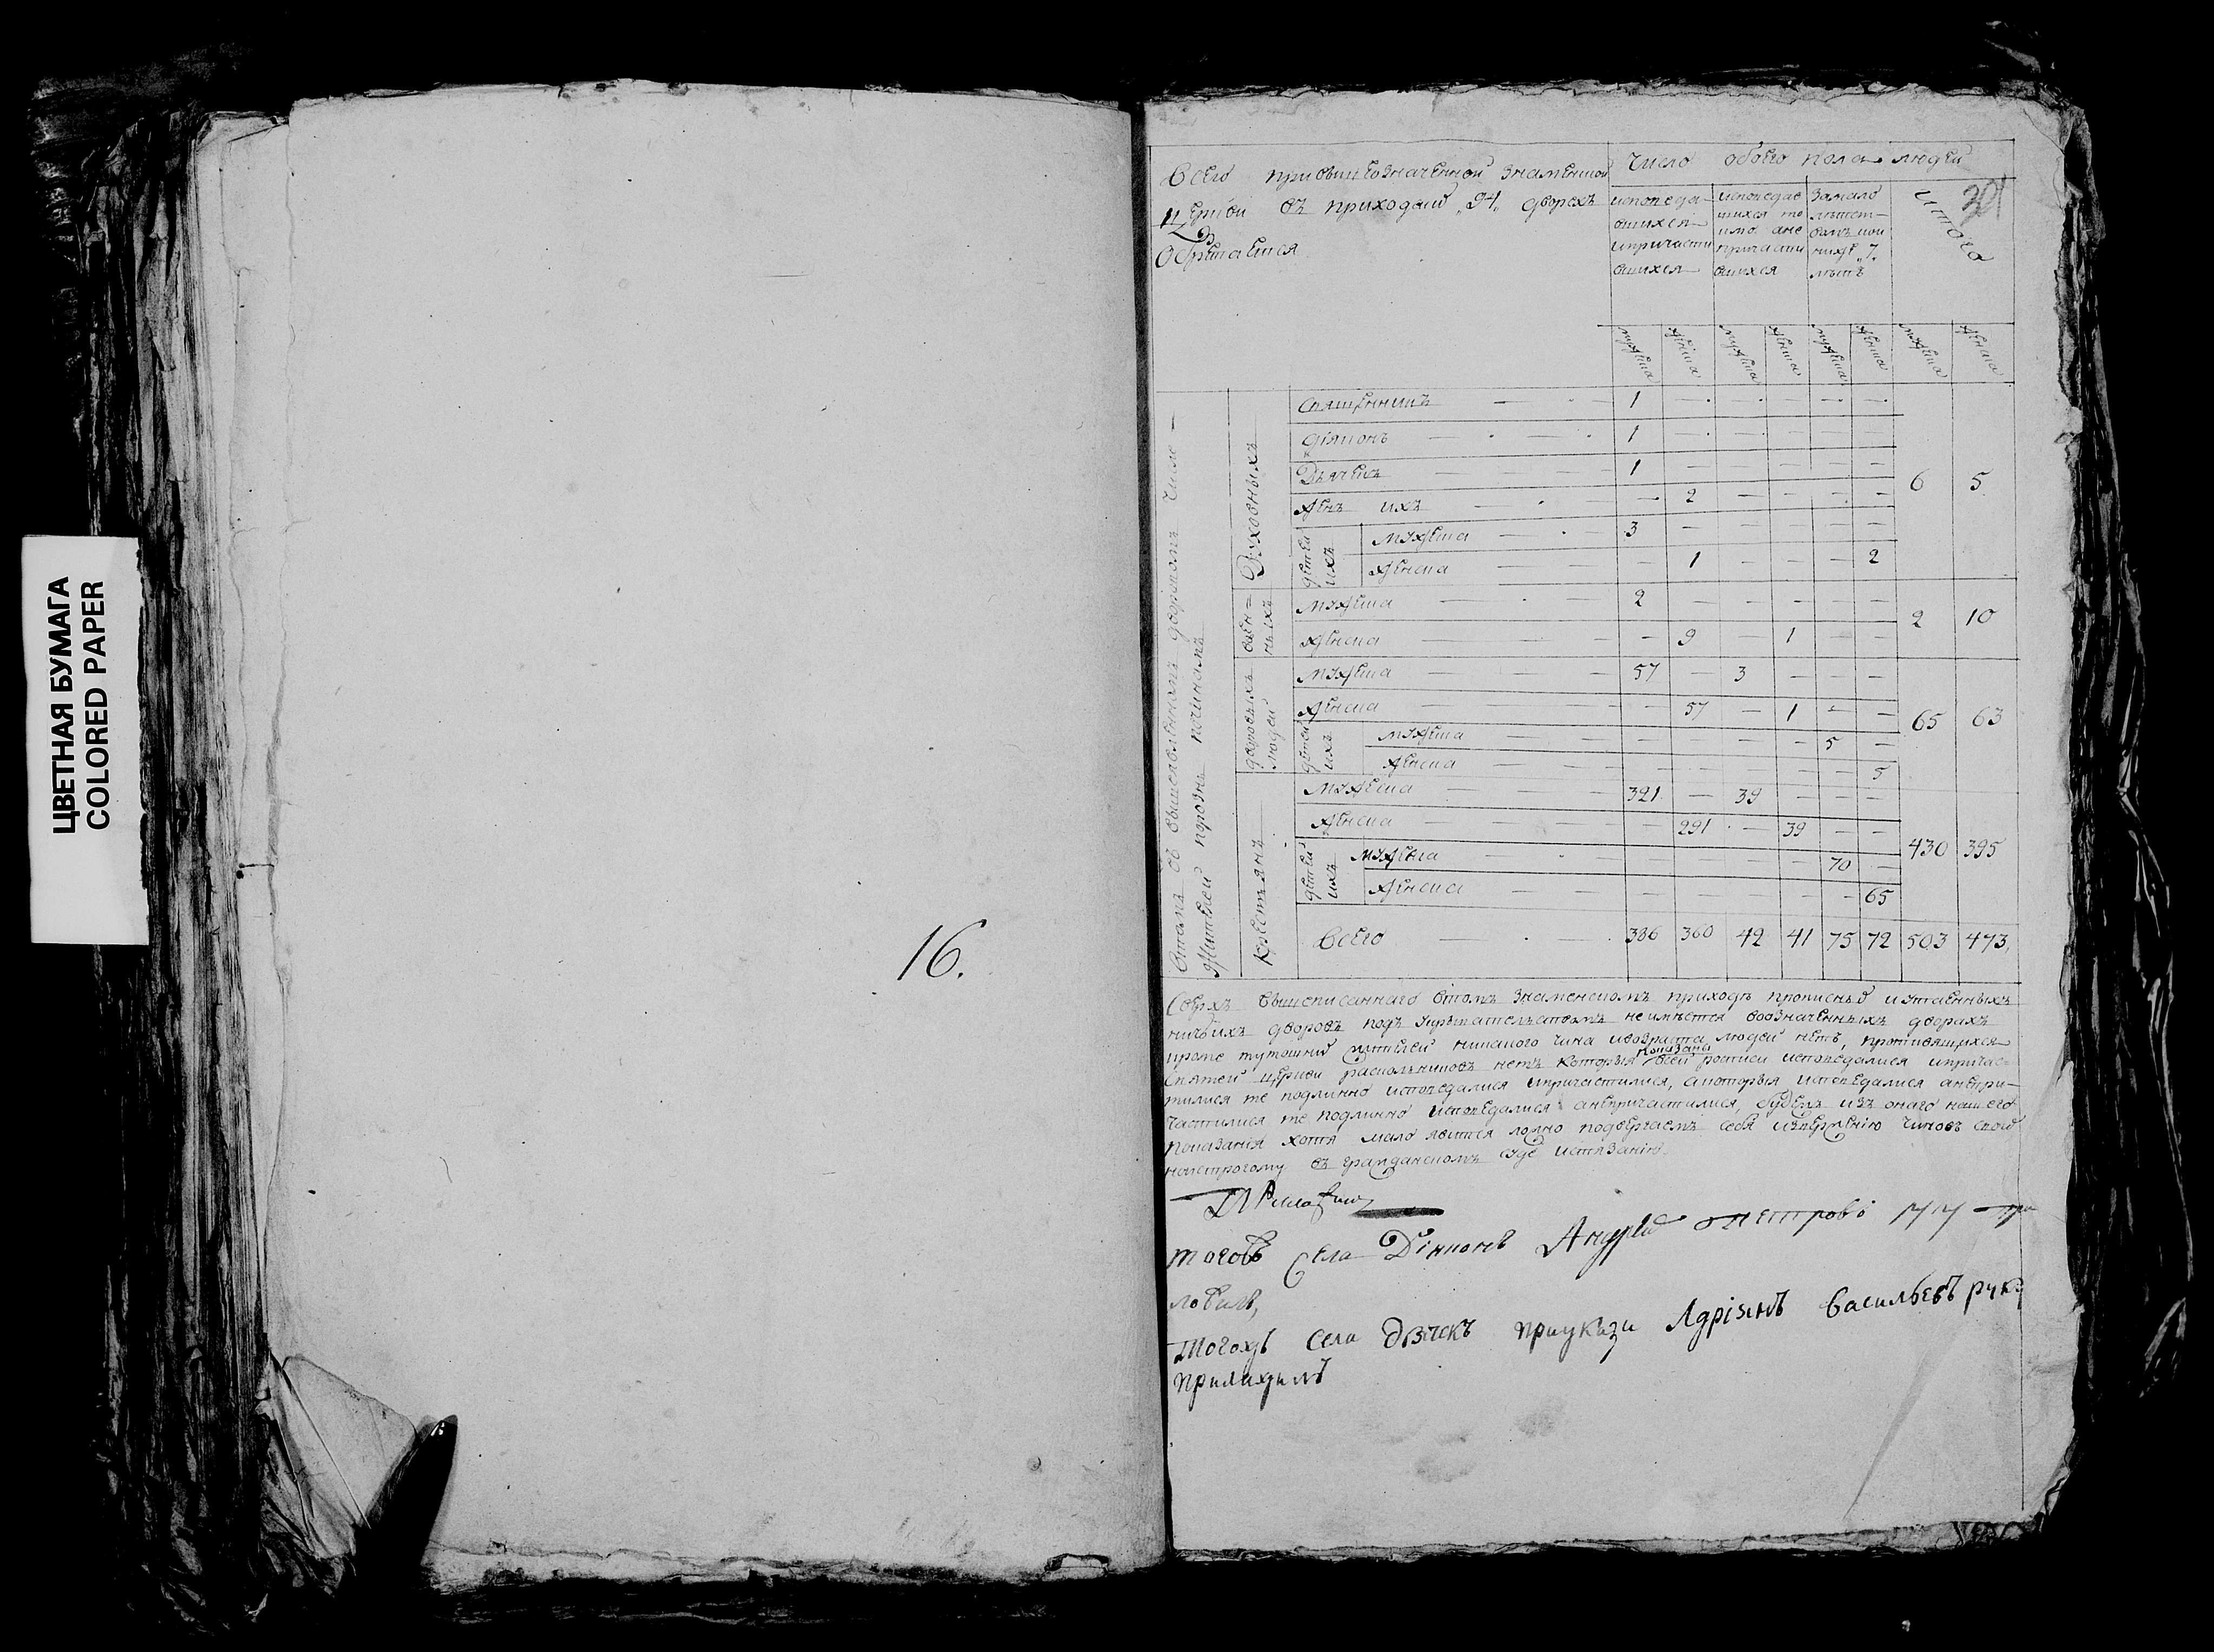 ЦВЕТНАЯ БУМАГА
COLORED PAPER
16.
Всего при вышеозначенной знаменской
церкви въ приходѣ 94. дворехъ
Обретается
Число обоего пола людей
исповеда
вшихся
и причасти
вшихся
исповедав
шихся то
имо а не
причасти
вшихся
за мало
лѣтст
вомъ кои
ниже 7.
лѣтъ
итого
301
мужеска
женска
мужеска
женска
мужеска
женска
мужеска
женска
Духовныхъ
Священникъ 1
Діяконъ 1
Дьячекъ 1
женъ ихъ 2
6 5
детей ихъ
мужеска 3
женска 1 2
военныхъ
мужеска 2
женска 9 1
2 10
дворовыхъ людей
мужеска 57 3
женска 57 1
65 63
детей ихъ
мужеска 5
женска 5
Крестьянъ
мужеска 321 39
женска 291 39
430 395
детей ихъ
мужеска 70
женска 65
Всего 386 360 42 41 75 72 503 473
Сверхъ вышеписаннаго в томъ знаменскомъ приходѣ прописныхъ и утаенныхъ
ничьихъ дворовъ подъ укрывателствомъ не имѣется в означенныхъ дворахъ
кроме тутошних жителей никакого чина и возраста людей нетъ, противящихся
святей церкви раскольниковъ нетъ которыя показаны в сей росписи исповедалися и причас
тилися те подлинно исповедалися и причастилися, а которыя исповедалися а не при
частилися те подлинно исповедалися а не причастилися, будетъ изъ онаго нашего
показанія хотя мало явится ложно подвергаемъ себя изверженію чиновъ своих
и строгому въ гражданскомъ суде истязанію.
тогожъ села Діяконъ Андрей Петровъ руку
ложилъ,
Тогожъ села дьячекъ Адріянъ Васильевъ руку
приложилъ